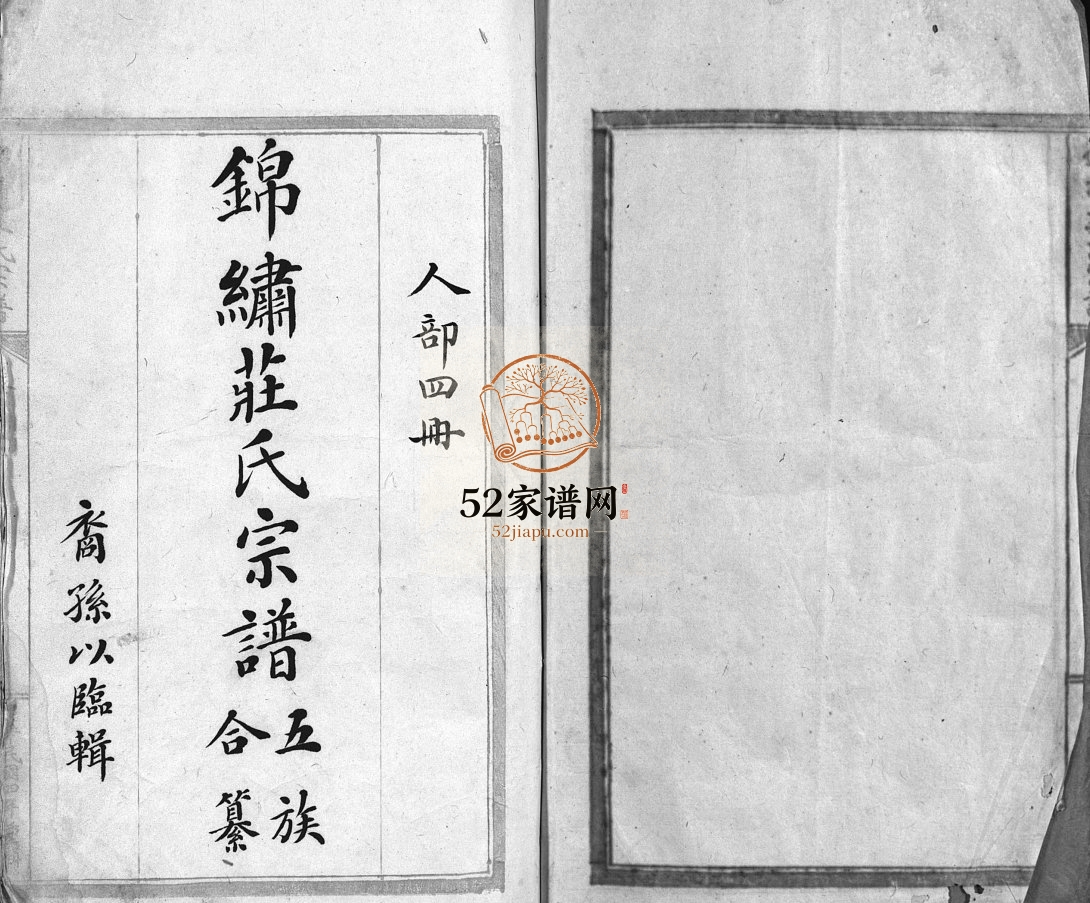 人部四冊
錦繡莊氏宗譜
五族
合纂
裔孫以臨輯
52家谱网
52jiapu.com